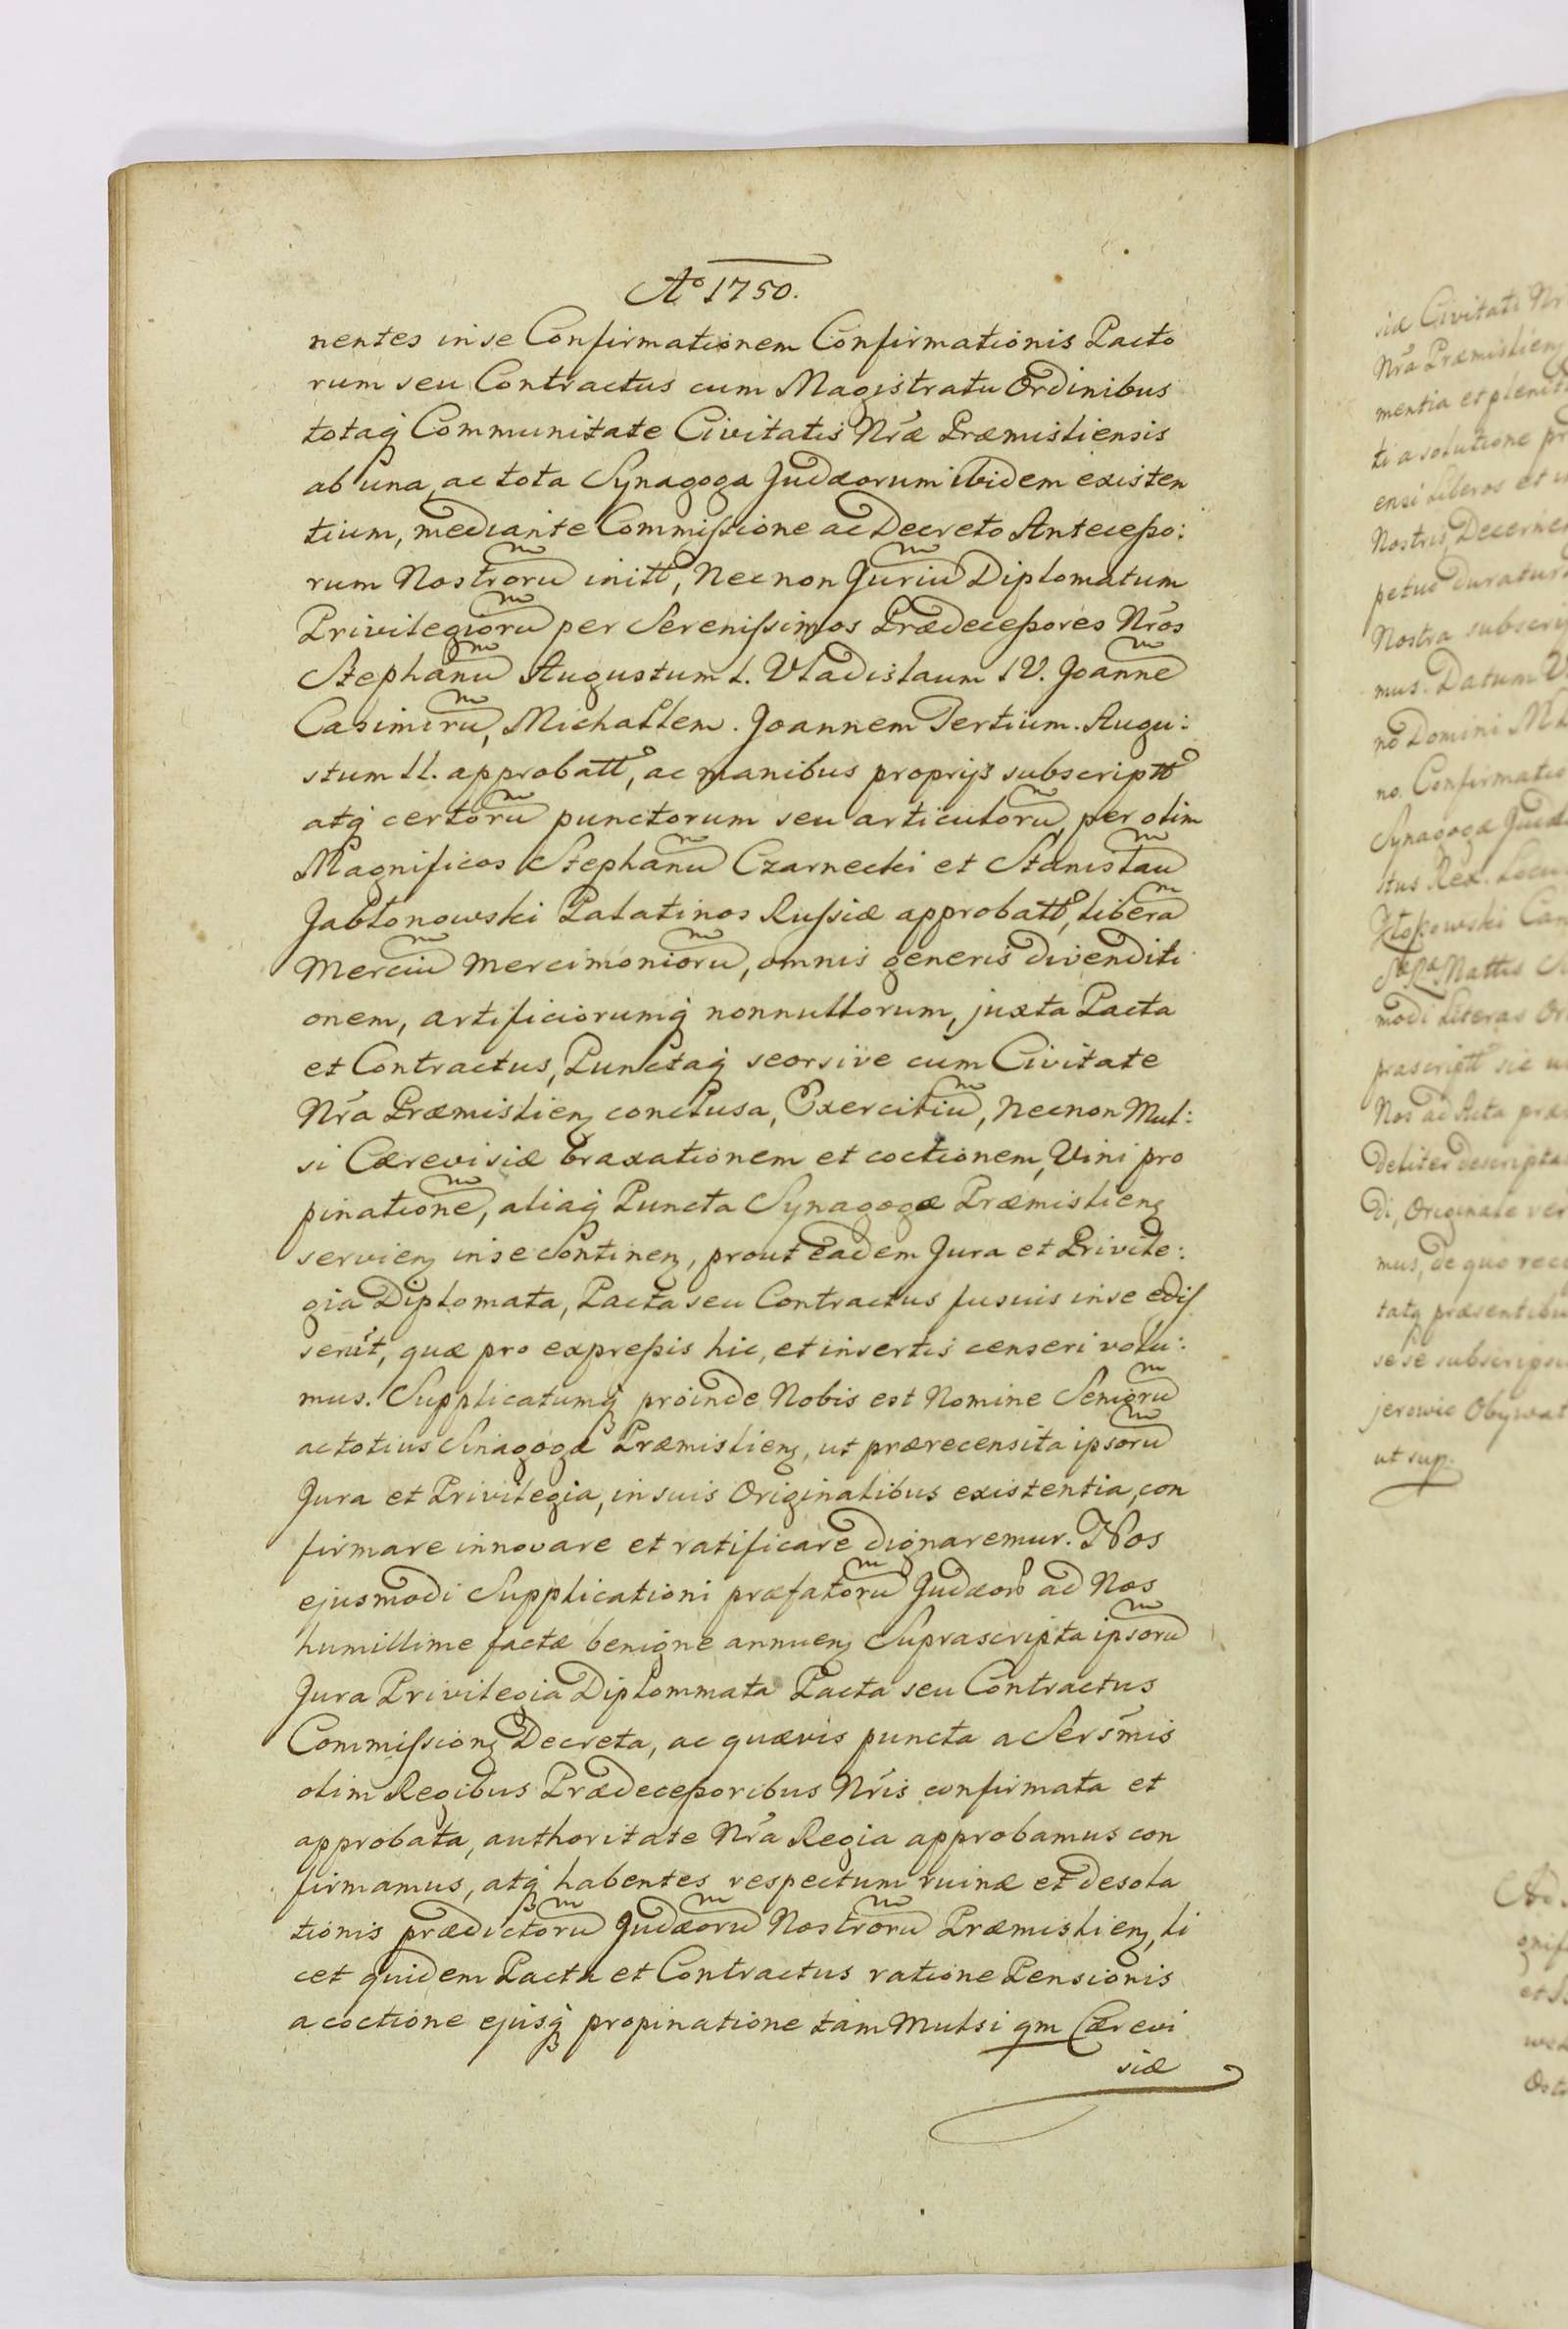 Aº 1750.
nentes in se Confirmationem Confirmationis Pacto
rum seu Contractus cum Magistratu Ordinibus
totaq Communitate Civitatis Nrǽ Præmisliensis
ab una, ac tota Synagoga Judæorum ibidem existen
tium, mediante Commissione ac Decreto Antecesso:
rum Nostrorũ initt, Necnon Juriũ Diplomatum
Privilegiorũ per Serenissimos Prædecessores Nros
Stephanũ Augustum I. Vladislaum IV. Joannẽ
Casimirũ, Michallem. Joannem Tertium. Augu:
stum II. approbatt, ac manibus proprijs subscriptt
atq certorũ punctorum seu articulorũ, per olim
Magnificos Stephanũ Czarnecki et Stanislaũ
Jabłonowski Palatinos Russiæ approbatt, liberã
Merciũ Mercimoniorũ, omnis generis divenditi
onem, artificiorumq nonnullorum, juxta Pacta
et Contractus, Punctaq seorsive cum Civitate
Nra Præmislien conclusa, Exercitiũ, Necnon Mul:
si Cærevisiæ braxationem et coctionem, Vini pro
pinationẽ, aliaq Puncta Synagogæ Præmislien
servien in se continen, prout eadem Jura et Privile:
gia Diplomata, Pacta seu Contractus fusius in se edis
serũt, quæ pro expressis hic, et insertis censeri volu:
mus. Supplicatumq proinde Nobis est Nomine Seniorũ
ac totius Sinagogæ Præmislien, ut prærecensita ipsorũ
Jura et Privilegia, in suis Originalibus existentia, con
firmare innovare et ratificare dignaremur. Nos
ejusmodi Supplicationi præfatorũ Judæorũ ad Nos
humillime factæ benigne annuen Suprascripta ipsorũ
Jura Privilegia Diplommata Pacta seu Contractus
Commission Decreta, ac quævis puncta a Sersmis
olim Regibus Prædecessoribus Nris confirmata et
approbata, authoritate Nra Regia approbamus con
firmamus, atq habentes respectum ruinæ et desola
tionis prædictorũ Judæorũ Nostrorũ Præmislien, li
cet quidem Pacta et Contractus ratione Pensionis
a coctione ejusq propinatione tam Mulsi qm Cærevi
siæ
siæ Civitati
Nra Præmislien
mentia et plenit
ti a solutione
ensi Liberos et
Nostris, Decerne
petuo duratur
Nostra subscri
mus. Datum
no Domini
no. Confirmatio
Synagogæ Judæ
stus Rex. Locus
modi Literas Or
præscriptt sic
Nos ad Acta præ
deliter descripta
di, Originale ver
mus, de quo rec
tatq præsentibus
sese subscripsi
jerowic Obywat
ut sup.